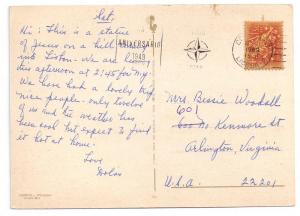 Sat.
Hi: This is a statue
of Jesus on a hill
into Lisbon. We are
this afternoon at 2:45 for N.Y.
We have had a lovely trip
nice people - only twelve
of us and the weather has
been cool but expect to find
it hot at home.
Love
ANIVERSARIO
1949
Mrs. Bessie Woodall
601
No. Kenmore St
Arlington, Virginia
U.S.A. 22201